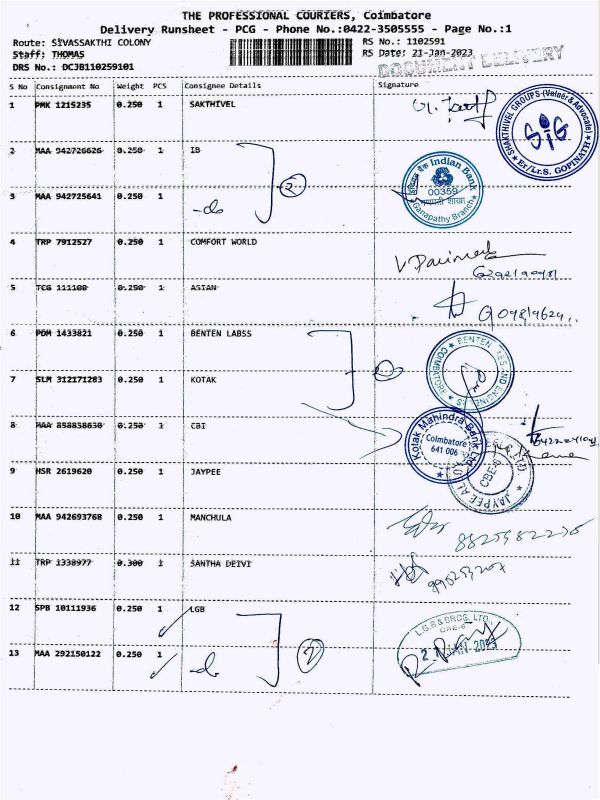 THE PROFESSIONAL COURIERS, Coimbatore
Delivery Runsheet - PCG - Phone No.:0422-3505555 - Page No.:1
Route: SIVASSAKTHI COLONY
RS No.: 1102591
Staff: THOMAS
RS Date: 21-Jan-2023
DRS No.: DCJB110259101
DOCUMENT DELIVERY
S No Consignment No Weight PCS Consignee Details Signature
1 PMK 1215235 0.250 1 SAKTHIVEL
SHAKTHIVEL GROUPS (Valuer & Advocate)
SG
Er/Lr.S. GOPINATH
2 MAA 942726626 0.250 1 IB
2
Indian Bank
00359
गणपती शाखा
Ganapathy Branch
3 MAA 942725641 0.250 1
-do
4 TRP 7912527 0.250 1 COMFORT WORLD
5 TCG 111108 0.250 1 ASIAN
6 PDM 1433821 0.250 1 BENTEN LABSS
COIMBATORE
7 SLM 312171283 0.250 1 KOTAK
8 MAA 858858630 0.250 1 CBI
Kotak Mahindra Bank Ltd
Coimbatore
641 006
9 HSR 2619620 0.250 1 JAYPEE
JAYPEE
CBE-6
10 MAA 942693768 0.250 1 MANCHULA
11 TRP 1338977 0.300 1 SANTHA DEIVI
12 SPB 10111936 0.250 1 LGB
L.G.B & BROS. LTD.,
CBE-6
21 JAN 2023
13 MAA 292150122 0.250 1
-do